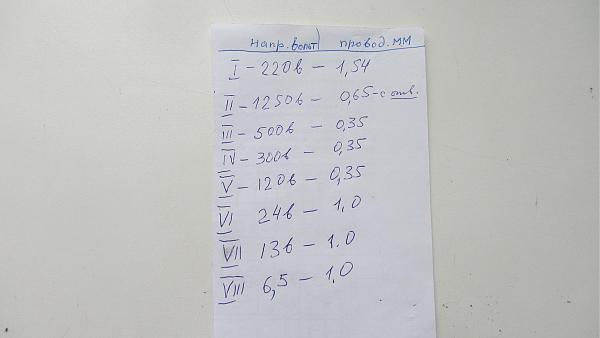 напр. вольт) провод. мм
I - 220в - 1,54
II - 1250в - 0,65 - с отв.
III - 500в - 0,35
IV - 300в - 0,35
V - 120в - 0,35
VI 24в - 1.0
VII 13в - 1.0
VIII 6,5 - 1,0